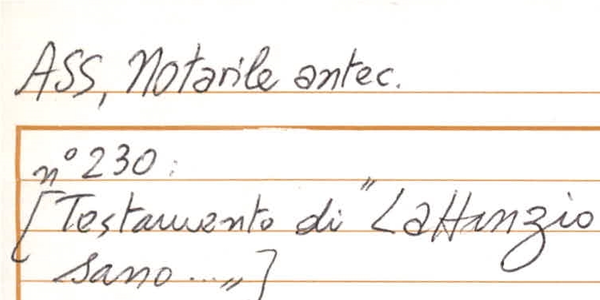 ASS, Notarile antec.
n° 230:
[Testamento di "Lattanzio
sano..."]